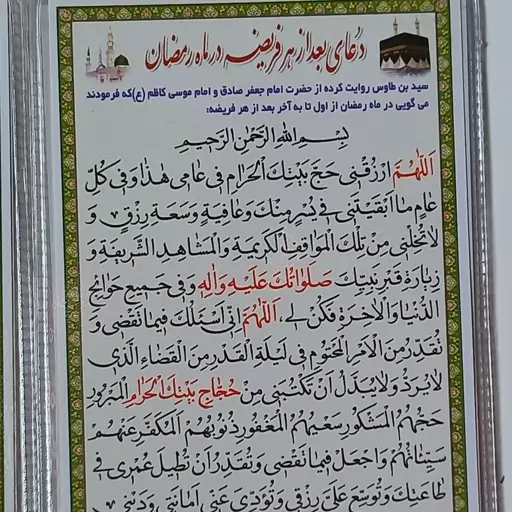 دعای بعد از هر فریضه در ماه رمضان
سید بن طاوس روایت کرده از حضرت امام جعفر صادق و امام موسی کاظم (ع) که فرمودند
می گویی در ماه رمضان از اول تا به آخر بعد از هر فریضه:
بِسْمِ اللهِ الرَّحْمٰنِ الرَّحیمِ
اَللّٰهُمَّ ارْزُقْنی حَجَّ بَیْتِكَ الْحَرٰامِ فی عٰامی هٰذٰا وَ فی كُلِّ
عٰامٍ مٰا اَبْقَیْتَنی فی یُسْرٍ مِنْكَ وَ عٰافِیَةٍ وَ سَعَةِ رِزْقٍ وَ
لاٰ تُخْلِنی مِنْ تِلْكَ الْمَوٰاقِفِ الْكَریمَةِ وَ الْمَشٰاهِدِ الشَّریفَةِ وَ
زِیٰارَةِ قَبْرِ نَبِیِّكَ صَلَوٰاتُكَ عَلَیْهِ وَ اٰلِهِ وَ فی جَمیعِ حَوٰائِجِ
الدُّنْیٰا وَ الْاٰخِرَةِ فَكُنْ لی، اَللّٰهُمَّ اِنّی اَسْئَلُكَ فیمٰا تَقْضی وَ
تُقَدِّرُ مِنَ الْاَمْرِ الْمَحْتُومِ فی لَیْلَةِ الْقَدْرِ مِنَ الْقَضٰاءِ الَّذی
لاٰ یُرَدُّ وَ لاٰ یُبَدَّلُ اَنْ تَكْتُبَنی مِنْ حُجّٰاجِ بَیْتِكَ الْحَرٰامِ الْمَبْرُورِ
حَجُّهُمُ الْمَشْكُورِ سَعْیُهُمُ الْمَغْفُورِ ذُنُوبُهُمُ الْمُكَفَّرِ عَنْهُمْ
سَیِّئٰاتُهُمْ وَ اجْعَلْ فیمٰا تَقْضی وَ تُقَدِّرُ اَنْ تُطیلَ عُمْری فی
طٰاعَتِكَ وَ تُوَسِّعَ عَلَیَّ رِزْقی وَ تُؤَدِّیَ عَنّی اَمٰانَتی وَ دَیْنی